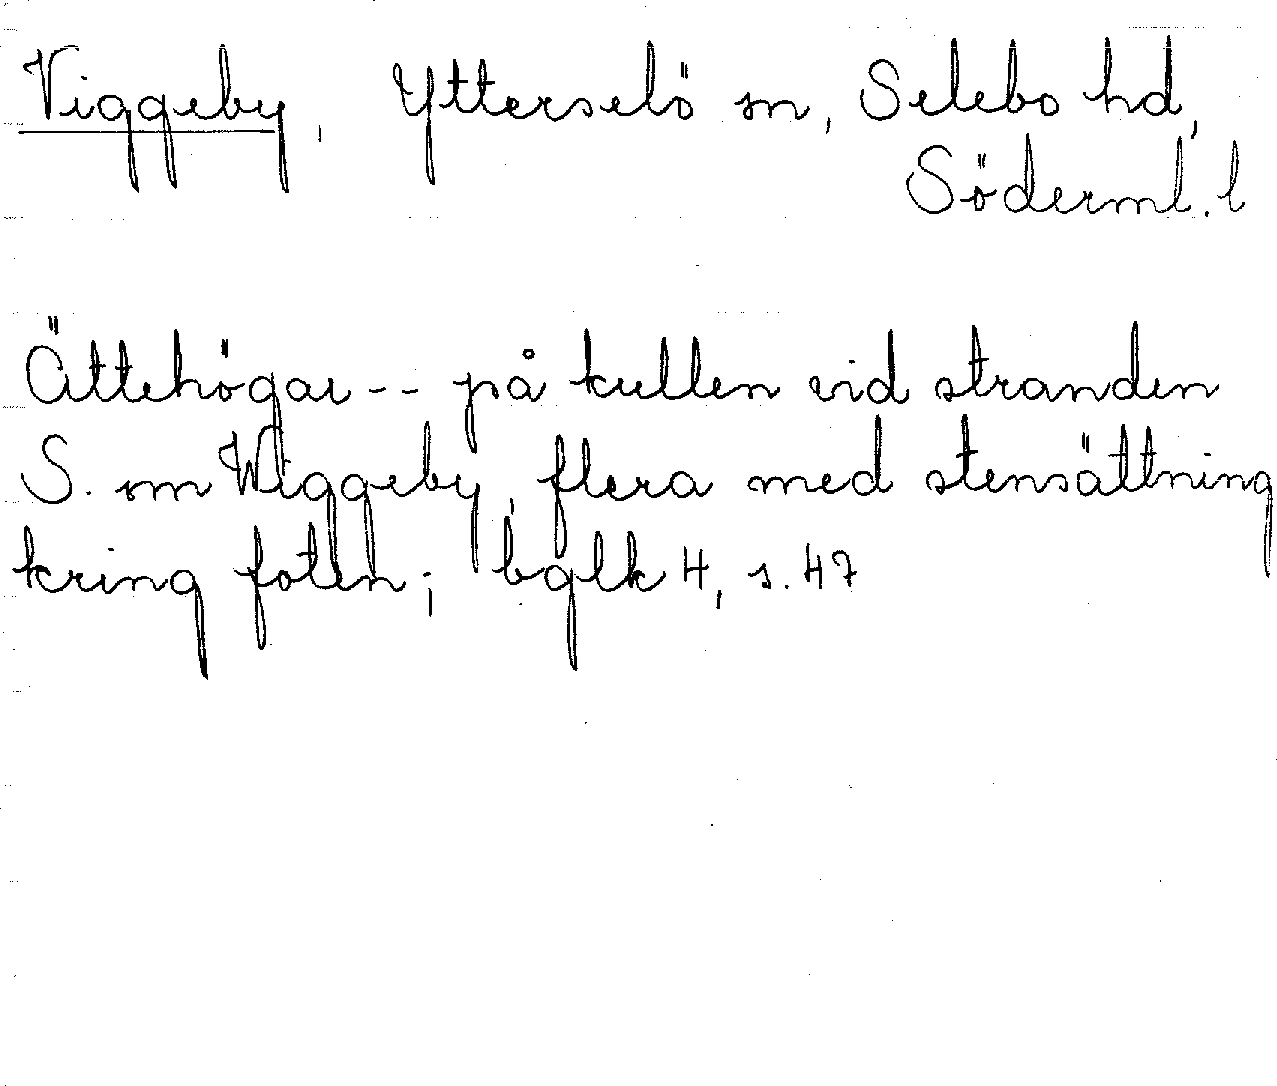 Viggeby, Ytterselö sn, Selebo hd,
Söderml. l
Ättehögar -- på kullen vid stranden
S. om Wiggeby, flera med stensättning
kring foten; bglk 4, s. 47